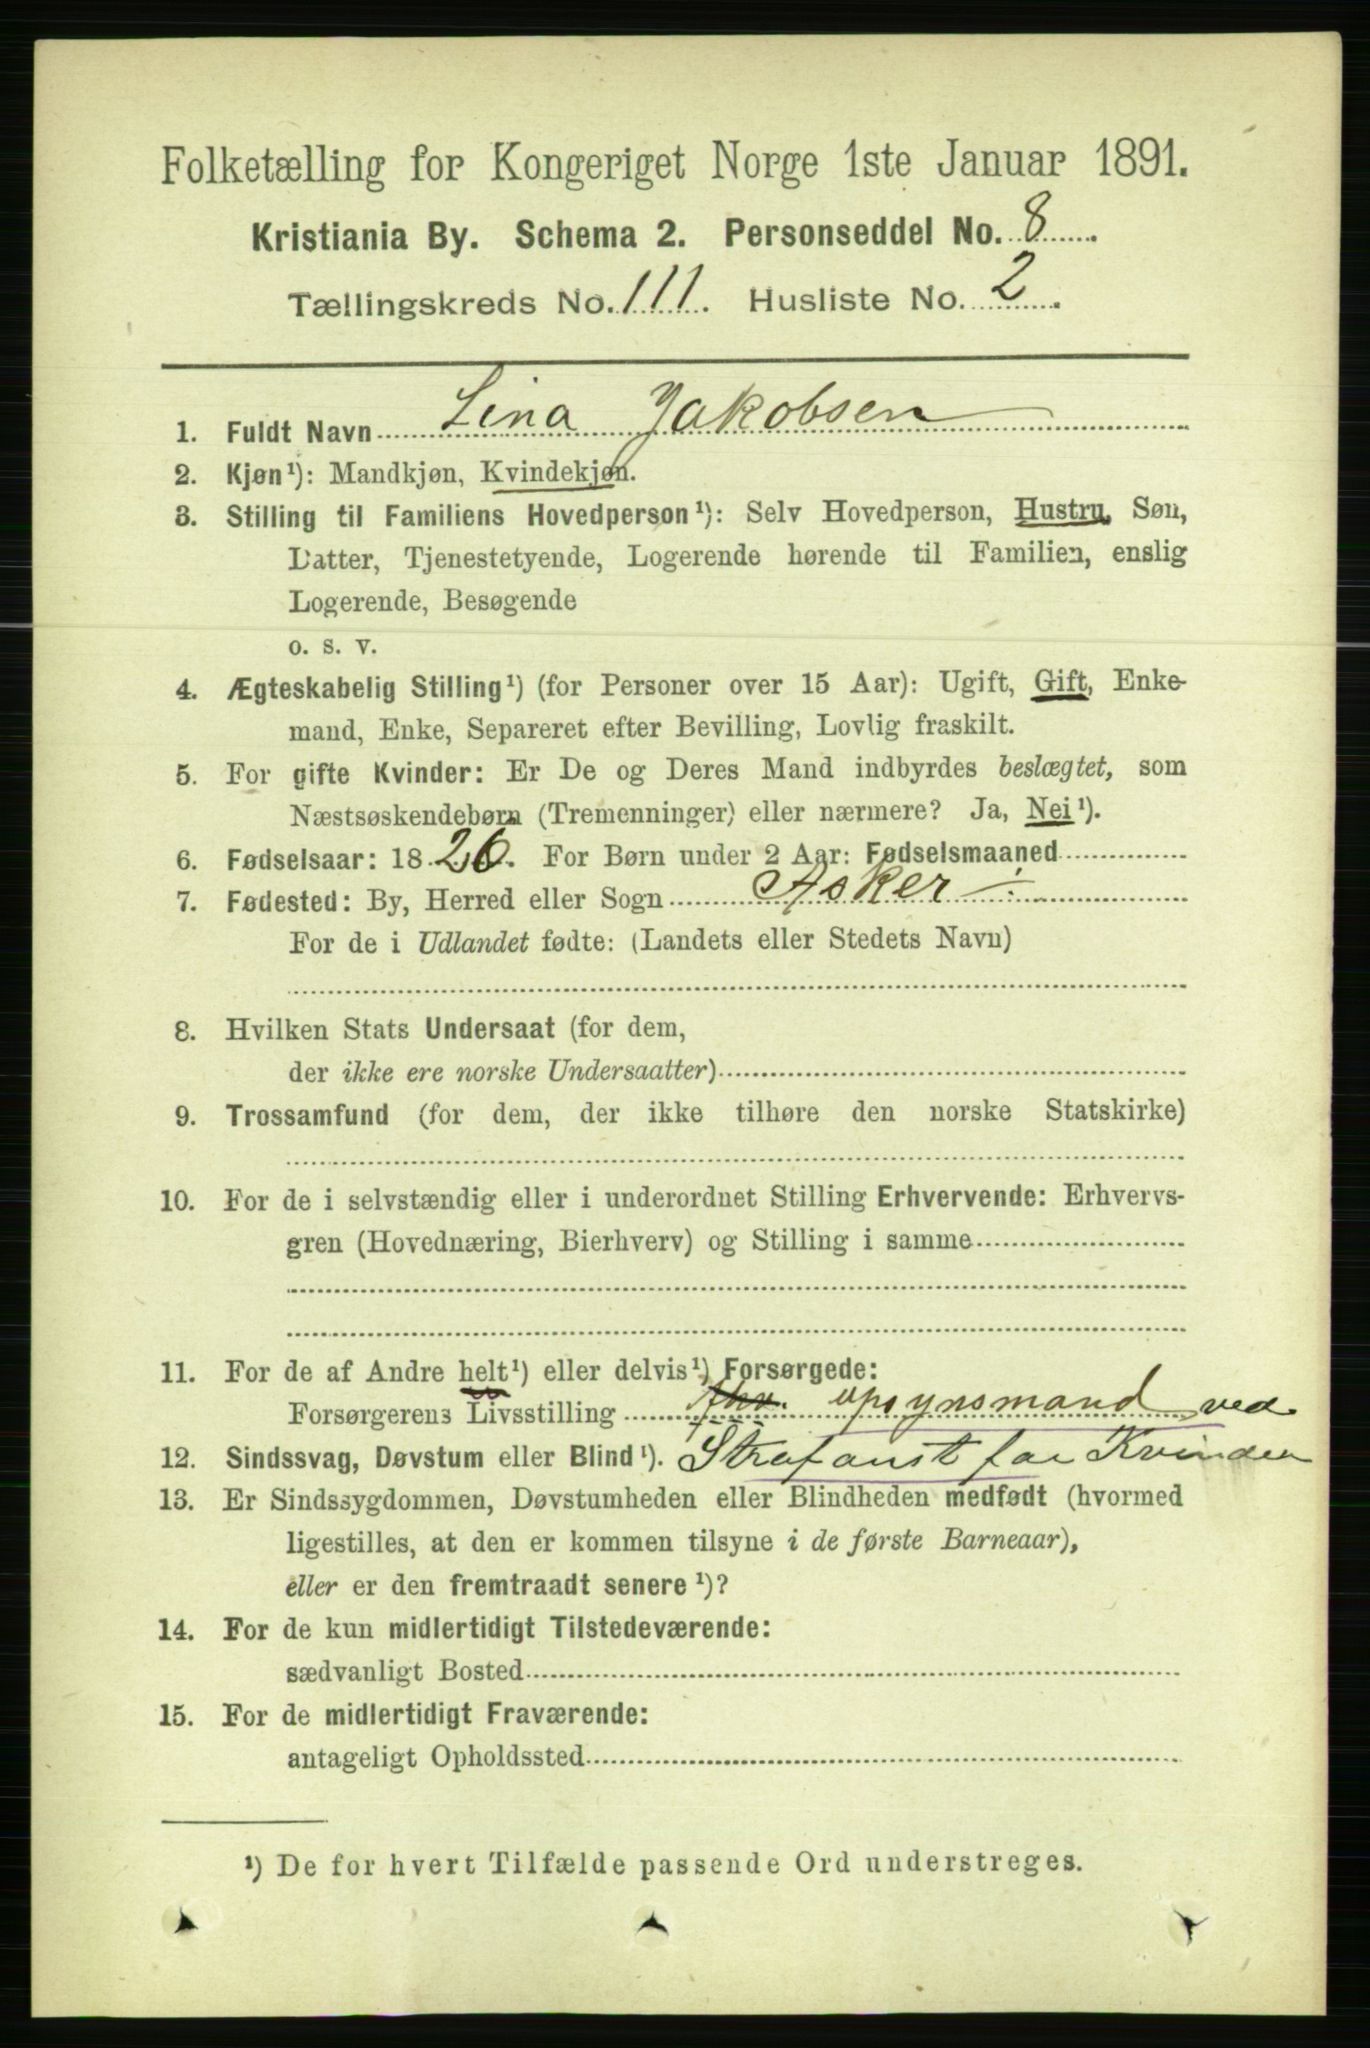 Folketælling for Kongeriget Norge 1ste Januar 1891.
Kristiania By. Schema 2. Personseddel No. 8
Tællingskreds No. 111. Husliste No. 2.
1. Fuldt Navn Lina Jakobsen
2. Kjøn¹): Mandkjøn, Kvindekjøn.
3. Stilling til Familiens Hovedperson¹): Selv Hovedperson, Hustru, Søn,
Datter, Tjenestetyende, Logerende hørende til Familien, enslig
Logerende, Besøgende
o. s. v.
4. Ægteskabelig Stilling¹) (for Personer over 15 Aar): Ugift, Gift, Enke-
mand, Enke, Separeret efter Bevilling, Lovlig fraskilt.
5. For gifte Kvinder: Er De og Deres Mand indbyrdes beslægtet, som
Næstsøskendebørn (Tremenninger) eller nærmere? Ja, Nei¹).
6. Fødselsaar: 1826. For Børn under 2 Aar: Fødselsmaaned
7. Fødested: By, Herred eller Sogn Asker
For de i Udlandet fødte: (Landets eller Stedets Navn)
8. Hvilken Stats Undersaat (for dem,
der ikke ere norske Undersaatter)
9. Trossamfund (for dem, der ikke tilhøre den norske Statskirke)
10. For de i selvstændig eller i underordnet Stilling Erhvervende: Erhvervs-
gren (Hovednæring, Bierhverv) og Stilling i samme
11. For de af Andre helt¹) eller delvis¹) Forsørgede:
Forsørgerens Livsstilling opsynsmand ved
12. Sindssvag, Døvstum eller Blind¹). Strafanst for Kvinder
13. Er Sindssygdommen, Døvstumheden eller Blindheden medfødt (hvormed
ligestilles, at den er kommen tilsyne i de første Barneaar),
eller er den fremtraadt senere¹)?
14. For de kun midlertidigt Tilstedeværende:
sædvanligt Bosted
15. For de midlertidigt Fraværende:
antageligt Opholdssted
¹) De for hvert Tilfælde passende Ord understreges.